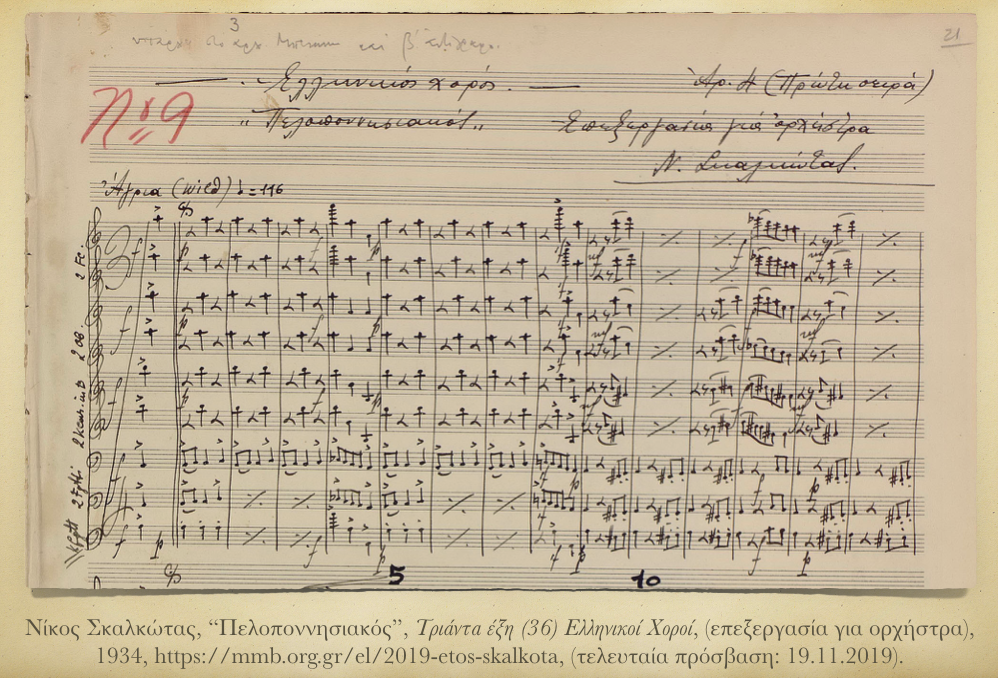 3
21
Ἑλληνικός χορός. Ἀρ. 4 (Πρώτη σειρά)
Nº 9
„Πελοποννησιακός„ Ἐπεξεργασία γιά ὀρχήστρα
Ν. Σκαλκώτας.
Ἄγρια (wild) ♩=116
2 Fl.
2 ob.
2 klar. in B
2 Fgtti
f
p
5
10
Νίκος Σκαλκώτας, “Πελοποννησιακός”, Τριάντα έξη (36) Ελληνικοί Χοροί, (επεξεργασία για ορχήστρα),
1934, https://mmb.org.gr/el/2019-etos-skalkota, (τελευταία πρόσβαση: 19.11.2019).